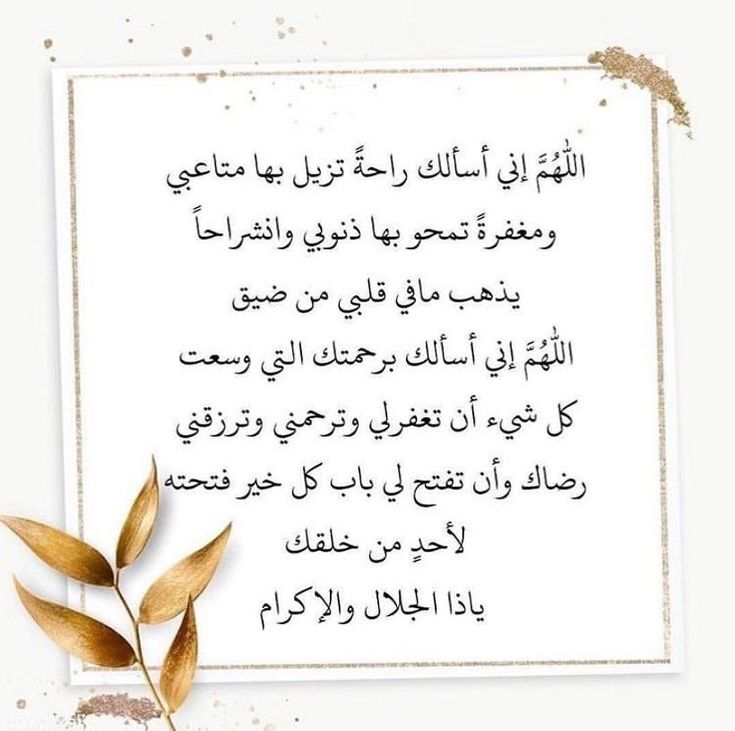 اللّٰهُمَّ إني أسألك راحةً تزيل بها متاعبي
ومغفرةً تمحو بها ذنوبي وانشراحاً
يذهب مافي قلبي من ضيق
اللّٰهُمَّ إني أسألك برحمتك التي وسعت
كل شيء أن تغفرلي وترحمني وترزقني
رضاك وأن تفتح لي باب كل خير فتحته
لأحدٍ من خلقك
ياذا الجلال والإكرام